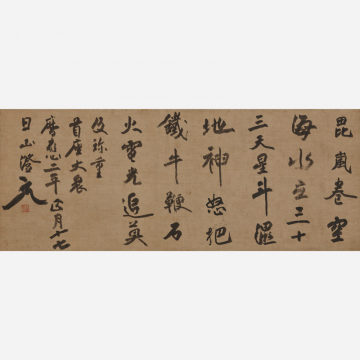 毘嵐巻空
海水立三十
三天星斗濕
地神怒把
鐵牛鞭石
火電光追莫
及珍重
首座大衆
暦應二年正月十七
日山澄